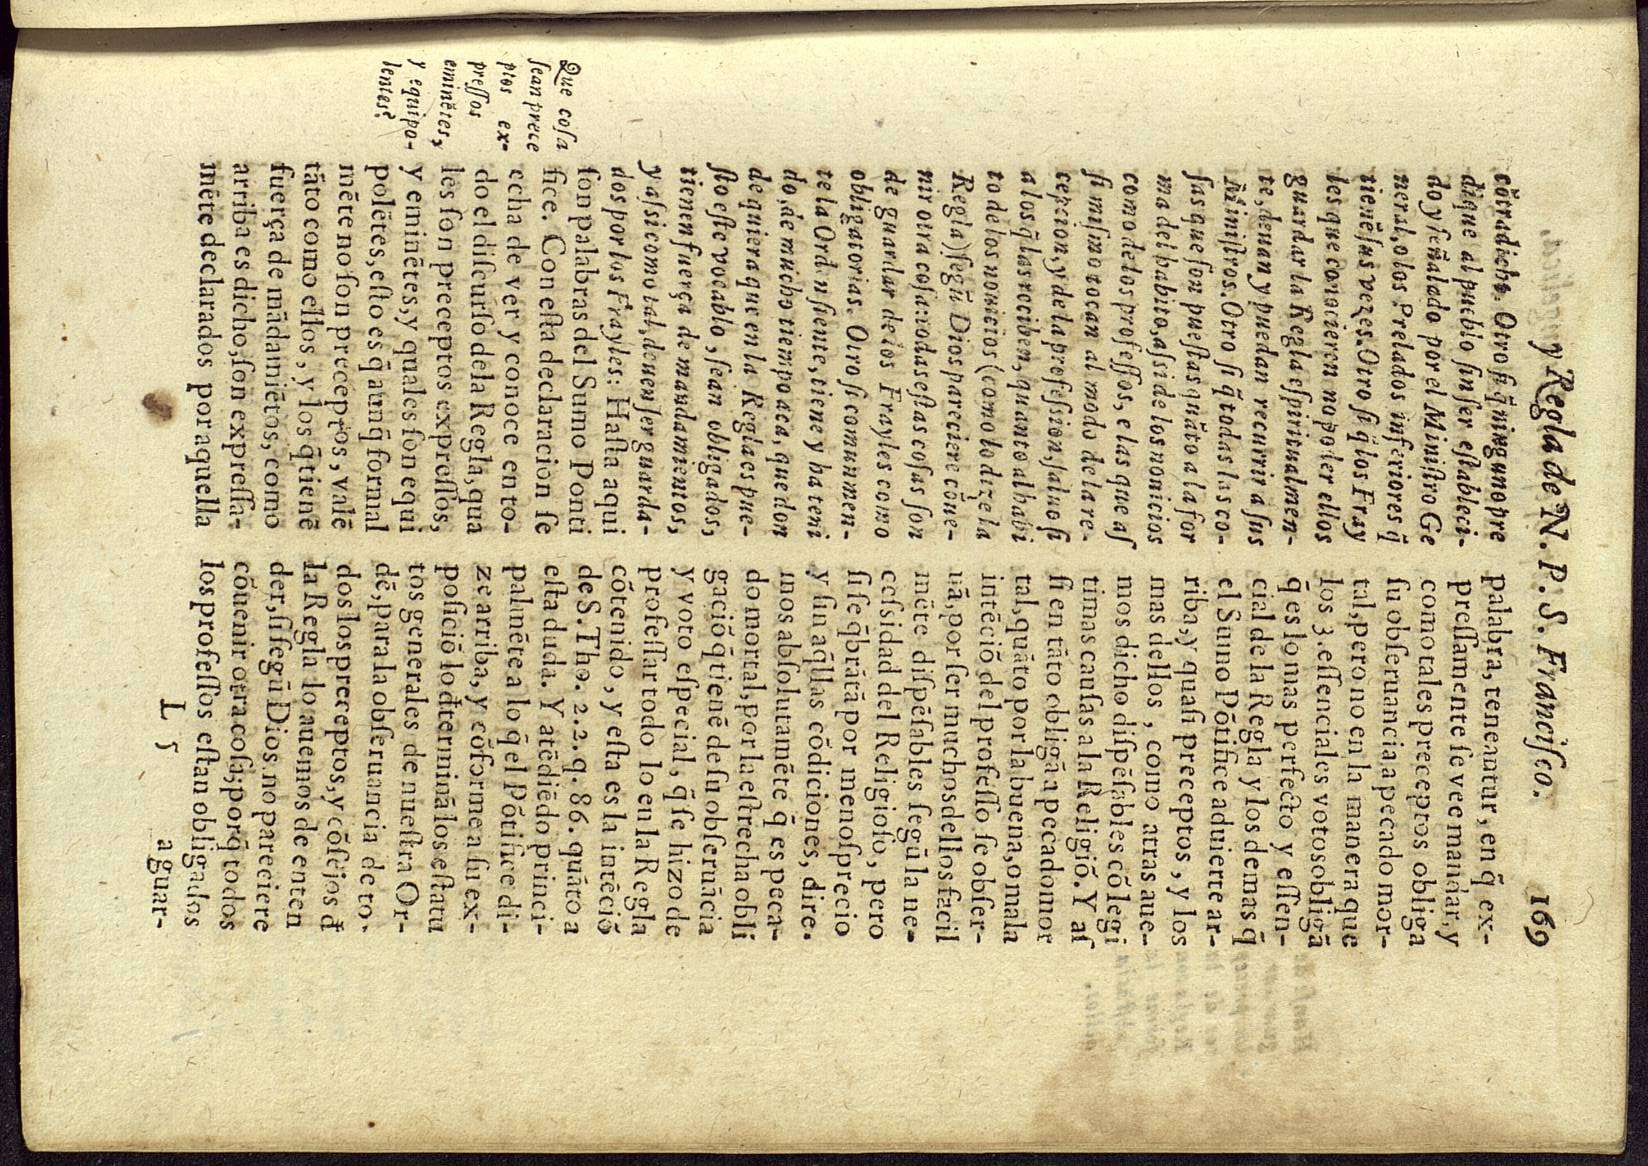 y Regla de N. P. S. Franciſco. 169
cõtradicho. Otro ſi q̃ ninguno pre
diq̃ue al pueblo ſin ſer eſtableci-
do y ſeñalado por el Miniſtro Ge
neral, o los Prelados inferiores q̃
tienẽ ſus vezes. Otro ſi q̃ los Fray
les que conocieren no poder ellos
guardar la Regla eſpiritualmen-
te, deuan y puedan recurrir a ſus
Miniſtros. Otro ſi q̃ todas las co-
ſas que ſon pueſtas quãto a la for
ma del habito, aſsi de los nouicios
como de los profeſſos, e las que aſ
ſi miſmo tocan al modo de la re-
cepcion, y de la profeſsion, ſaluo ſi
a los q̃ las reciben, quanto al habi
to de los nouicios (como lo dize la
Regla) ſegũ Dios pareciere cõue-
nir otra coſa: todas eſtas coſas ſon
de guardar de los Frayles como
obligatorias. Otro ſi comunmen-
te la Orden ſiente, tiene y ha teni
do, de mucho tiempo aca, que don
de quiera que en la Regla es pue-
ſto eſte vocablo, ſean obligados,
tienen fuerça de mandamientos,
y aſsi como tal, deuen ſer guarda-
dos por los Frayles: Haſta aqui
ſon palabras del Sumo Ponti
fice. Con eſta declaracion ſe
echa de ver y conoce en to-
do el diſcurſo dela Regla, qua
les ſon preceptos expreſſos,
y eminẽtes, y quales ſon equi
polẽtes, eſto es q̃ aunq̃ formal
mẽte no ſon preceptos, valẽ
tãto como ellos, y los q̃ tienẽ
fuerça de mãdamiẽtos, como
arriba es dicho, ſon expreſſa-
mẽte declarados por aquella
Que coſa
ſean prece
ptos ex-
preſſos
eminẽtes,
y equipo-
lentes?
palabra, teneantur, en q̃ ex-
preſſamente ſe vee mandar, y
como tales preceptos obliga
ſu obſeruancia a pecado mor-
tal, pero no en la manera que
los 3. eſſenciales votos obligã
q̃ es lo mas perfecto y eſſen-
cial de la Regla y los demas q̃
el Sumo Põtifice aduierte ar-
riba, y quaſi preceptos, y los
mas dellos, como atras aue-
mos dicho diſpẽſables cõ legi
timas cauſas a la Religiõ. Y aſ
ſi en tãto obligã a pecado mor
tal, quãto por la buena, o mala
intẽciõ del profeſſo ſe obſer-
uã, por ſer muchos dellos facil
mẽte diſpẽſables ſegũ la ne-
ceſsidad del Religioſo, pero
ſi ſe q̃brãtã por menoſprecio
y ſin aq̃llas cõdiciones, dire-
mos abſolutamẽte q̃ es peca-
do mortal, por la eſtrecha obli
gaciõ q̃ tienẽ de ſu obſeruãcia
y voto eſpecial, q̃ ſe hizo de
profeſſar todo lo en la Regla
cõtenido, y eſta es la intẽciõ
de S. Tho. 2. 2. q. 86. quãto a
eſta duda. Y atẽdiẽdo princi-
palmẽte a lo q̃ el Põtifice di-
ze arriba, y cõforme a ſu ex-
poſiciõ lo determinã los eſtatu
tos generales de nueſtra Or-
dẽ, para la obſeruancia de to-
dos los preceptos, y cõſejos đ
la Regla lo auemos de enten
der, ſi ſegũ Dios no pareciere
cõuenir otra coſa; porq̃ todos
los profeſſos eſtan obligados
L 5 a guar-